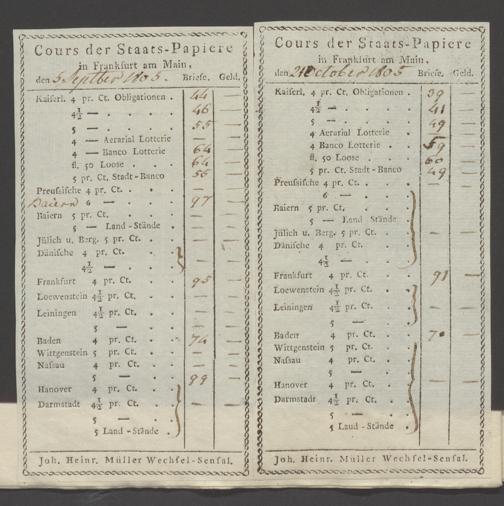 Cours der Staats-Papiere
in Frankfurt am Main,
den 5 Septber 1805. Briefe. Geld.
Kaiserl. 4 pr. Ct. Obligationen . 44 —
4½ — . . . . 46 —
5 — . . . . 55 —
4 — Aerarial Lotterie — —
4 — Banco Lotterie 64 —
fl. 50 Loose . . . 64 —
5 pr. Ct. Stadt-Banco 56 —
Preussische 4 pr. Ct. . . . — —
Baiern 6 — . . . 97 —
Baiern 5 pr. Ct. . . . — —
5 — Land-Stände . — —
Jülich u. Berg. 5 pr. Ct. . . — —
Dänische 4 pr. Ct. . .
4½ — . . — —
Frankfurt 4 pr. Ct. . . 95 —
Loewenstein 4½ pr. Ct. . . — —
Leiningen 4½ pr. Ct. . . — —
5 — . . — —
Baden 4 pr. Ct. . . 74 —
Wittgenstein 5 pr. Ct. . . — —
Nassau 4 pr. Ct. . . — —
5 — . . 99 —
Hanover 4 pr. Ct. . .
Darmstadt 4½ pr. Ct. . . — —
5 — . .
5 Land-Stände .
Joh. Heinr. Müller Wechsel-Sensal.
Cours der Staats-Papiere
in Frankfurt am Main,
den 21 October 1805 Briefe. Geld.
Kaiserl. 4 pr. Ct. Obligationen . 39
4½ — . . . . 41
5 — . . . . 49
4 Aerarial Lotterie —
4 Banco Lotterie . 59
fl. 50 Loose . . . 60
5 pr. Ct. Stadt-Banco 49
Preussische 4 pr. Ct. . . .
6 — . . .
Baiern 5 pr. Ct. . . .
5 — Land Stände
Jülich u. Berg. 5 pr. Ct. . . — —
Dänische 4 pr. Ct. . .
4½ — . .
Frankfurt 4 pr. Ct. . . 91 —
Loewenstein 4½ pr. Ct. . .
Leiningen 4½ pr. Ct. . . — —
5 — . .
Baden 4 pr. Ct. . . 70 —
Wittgenstein 5 pr. Ct. . .
Nassau 4 pr. Ct. . .
5 — . . — —
Hanover 4 pr. Ct. . .
Darmstadt 4½ pr. Ct. . .
5 — . .
5 Land-Stände .
Joh. Heinr. Müller Wechsel-Sensal.